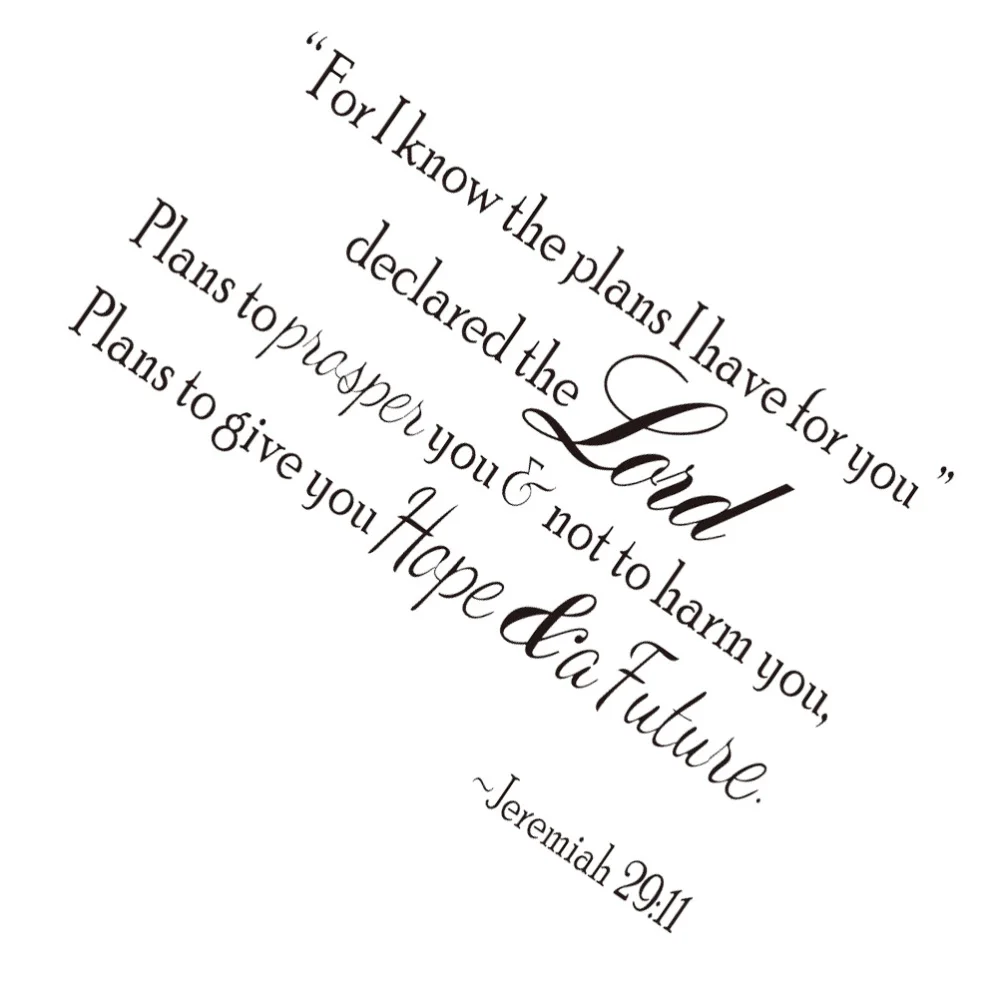 “For I know the plans I have for you ”
declared the Lord
Plans to prosper you & not to harm you,
Plans to give you Hope & a Future.
~Jeremiah 29:11